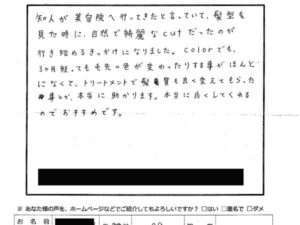 知人が美容院へ行ってきたと言っていて、髪型を
見た時に、自然で綺麗なcutだったのが
行き始めるきっかけになりました。colorでも、
3ヶ月経っても毛先の色が変わったりする事がほとん
どなくて、トリートメントで髪質も良く変えてもらった
事とか、本当に助かります。本当に良くしてくれる
のでおすすめです。
※ あなた様の声を、ホームページなどでご紹介してもよろしいですか？ □はい □匿名で □ダメ
お名前